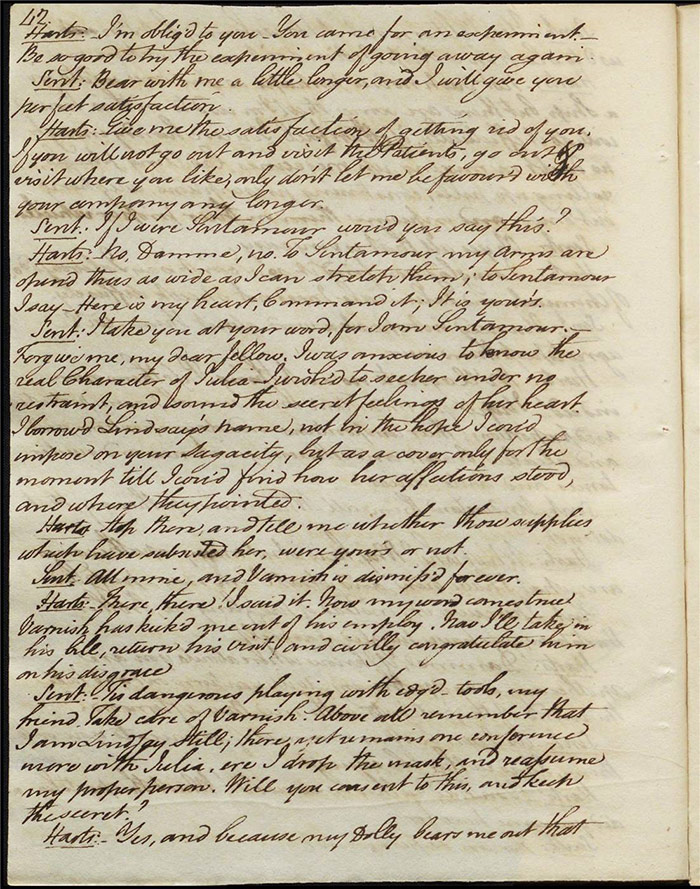 47
Harts:- I'm oblig'd to you - You came for an experiment.-
Be so good to try the experiment of going away again.
Sent: Bear with me a little longer, and I will give you
perfect satisfaction.
Harts: Give me the satisfaction of getting rid of you.
If you will not go out and visit the Patients, go out &
visit where you like, only don't let me be favour'd with
your company any longer.
Sent: If I were Sentamour wou'd you say this?
Harts: No, Damme, no. To Sentamour my Arms are
open'd thus as wide as I can stretch them; to Sentamour
I say - Here is my heart, Command it; It is yours.
Sent: I take you at your word, for I am Sentamour.-
Forgive me, my dear fellow. I was anxious to know the
real Character of Julia - I wish'd to see her under no
restraint, and sound the secret feelings of her heart.
I borrow'd Lindsay's name, not in the hope I cou'd
impose on your Sagacity, but as a cover only for the
moment till I cou'd find how her affections stood,
and where they pointed.
Harts: Stop there, and tell me whether those supplies
which have subsisted her, were yours or not.
Sent: All mine, and Varnish is dismiss'd for ever.
Harts:- There, there! I said it. Now my word comes true
Varnish has kick'd me out of his employ. Now I'll take in
his bill, return his visit, and civilly congratulate him
on his disgrace
Sent:- Tis dangerous playing with edg'd-tools, my
friend. Take care of Varnish. Above all remember that
I am Lindsay still; there yet remains one conference
more with Julia, ere I drop the mask, and reassume
my proper person. Will you consent to this, and keep
the secret?
Harts:- Yes, and because my Dolly bears me out that